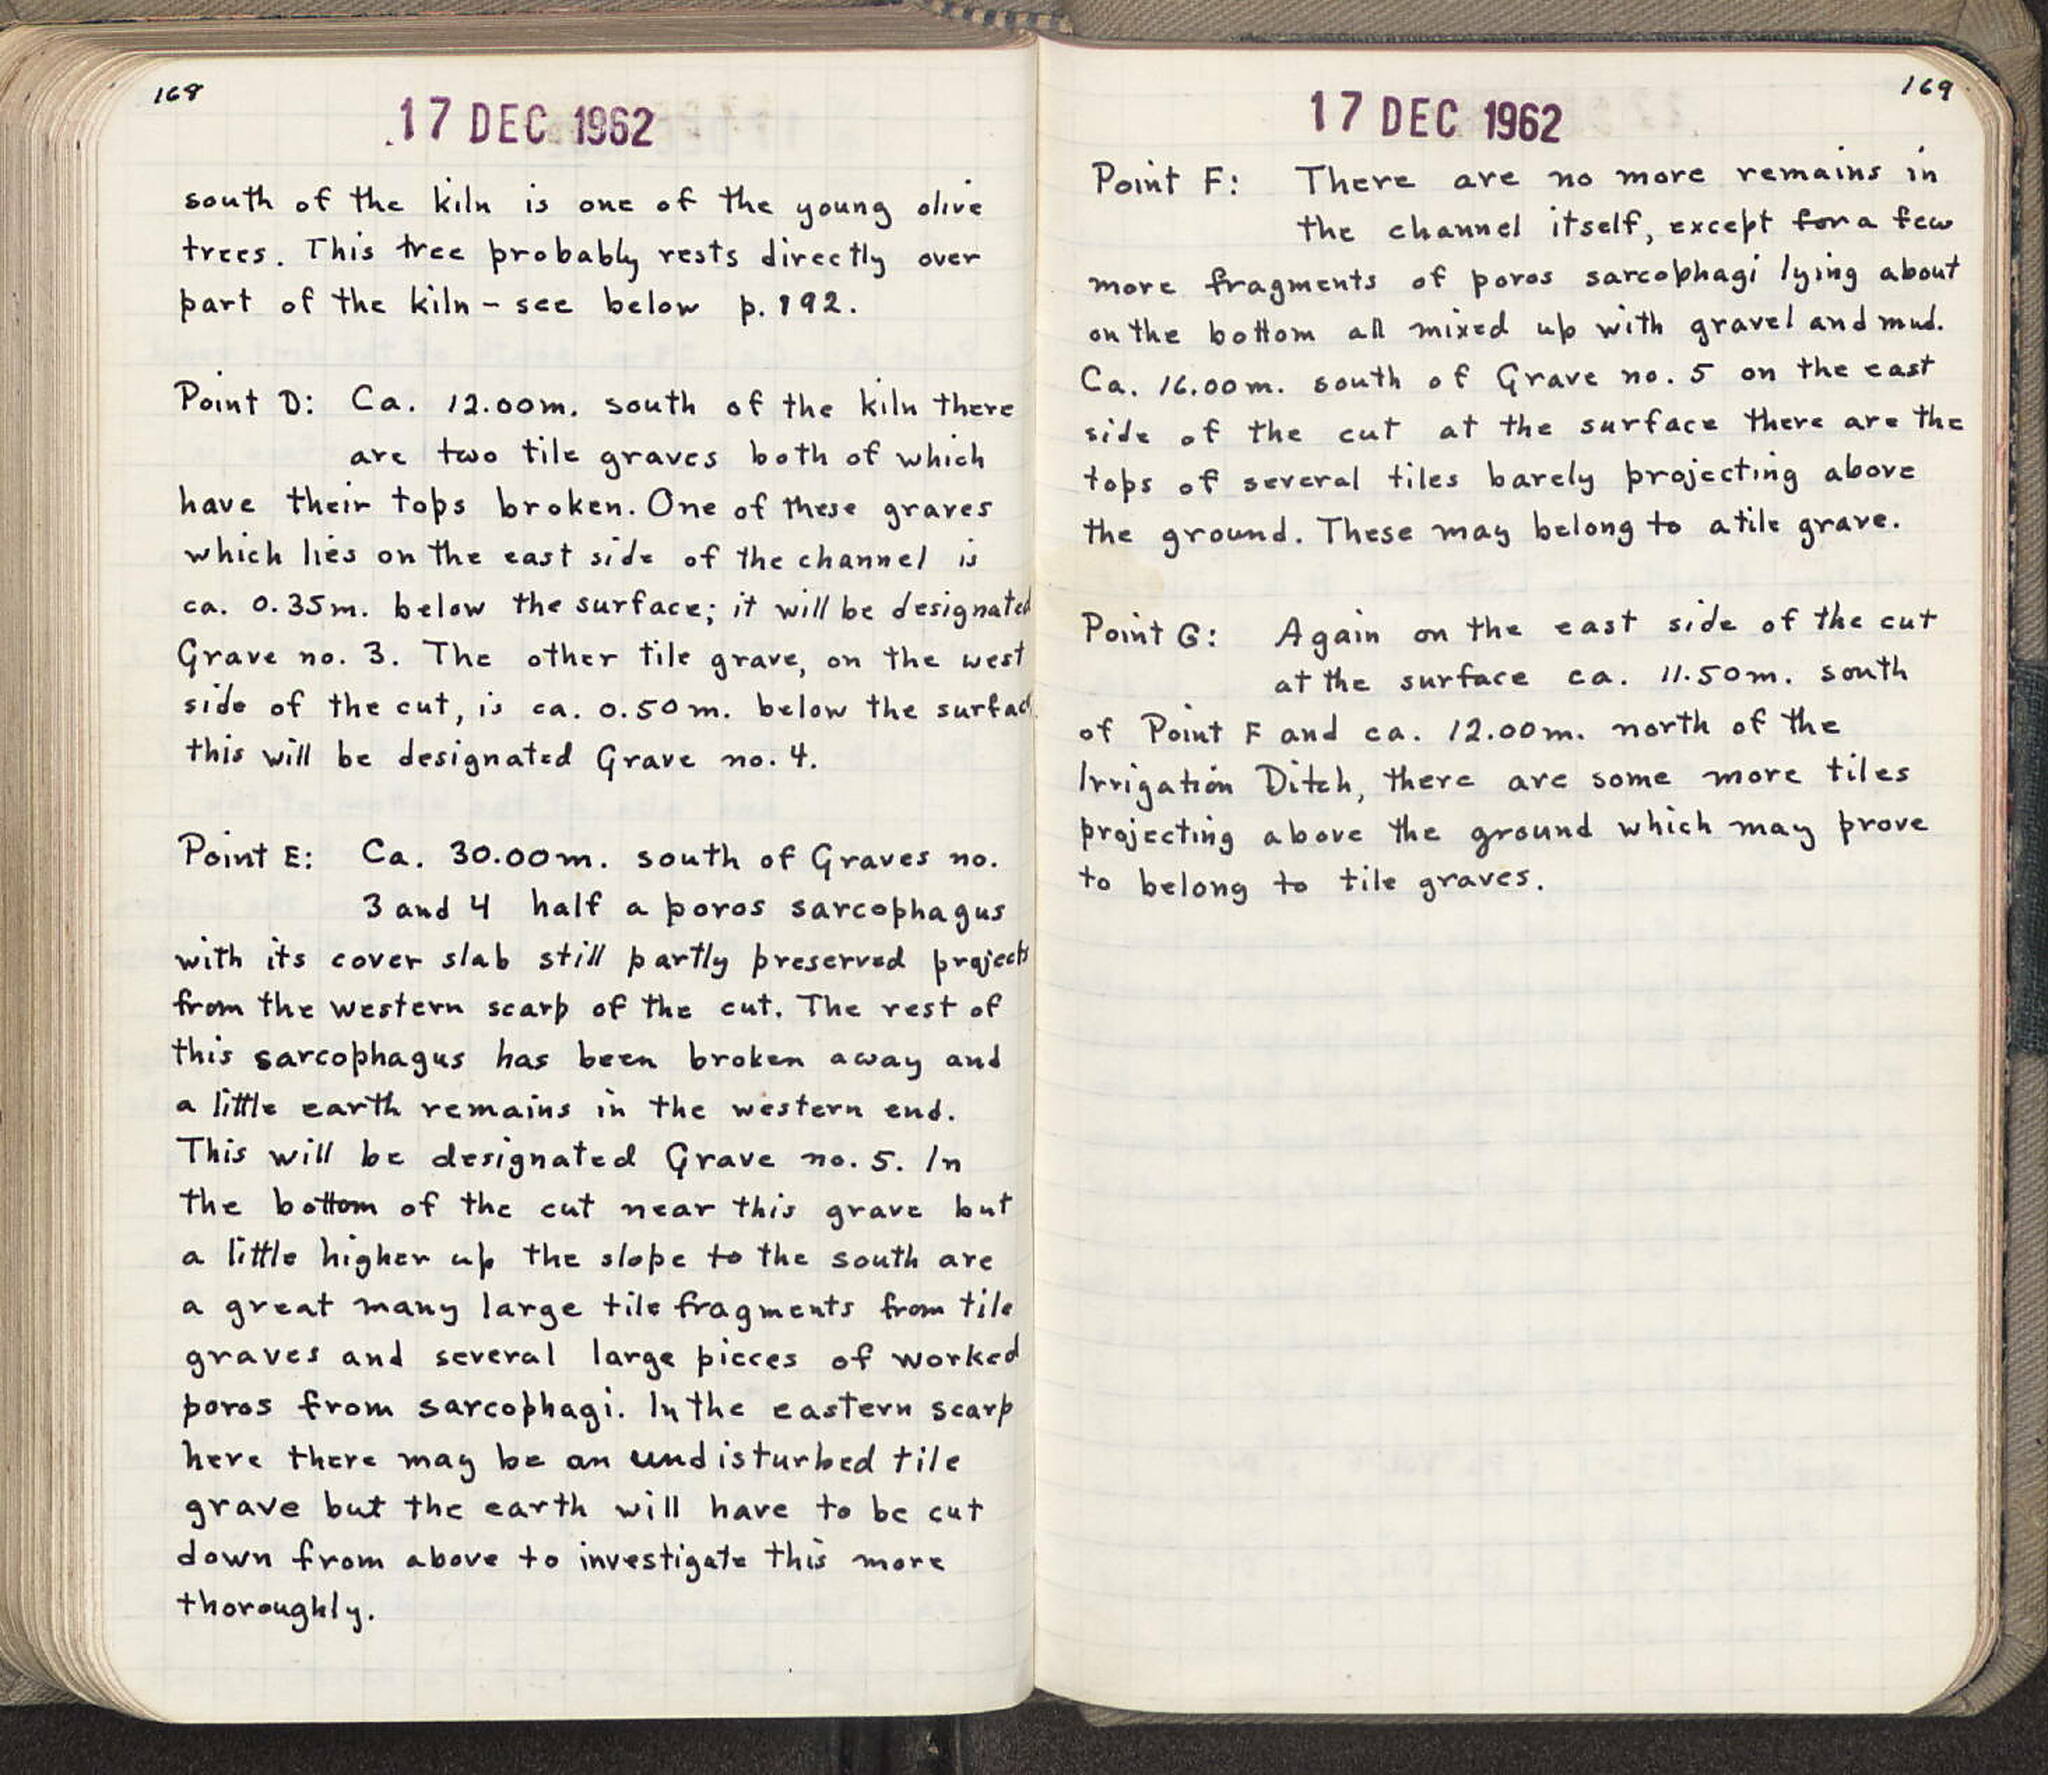 168
17 DEC 1962
south of the kiln is one of the young olive
trees. This tree probably rests directly over
part of the kiln - see below p. 192.
Point D: Ca. 12.00m. south of the kiln there
are two tile graves both of which
have their tops broken. One of these graves
which lies on the east side of the channel is
ca. 0.35m. below the surface; it will be designated
Grave no. 3. The other tile grave, on the west
side of the cut, is ca. 0.50m. below the surfac
this will be designated Grave no. 4.
Point E: Ca. 30.00m. south of Graves no.
3 and 4 half a poros sarcophagus
with its cover slab still partly preserved projects
from the western scarp of the cut. The rest of
this sarcophagus has been broken away and
a little earth remains in the western end.
This will be designated Grave no. 5. In
the bottom of the cut near this grave but
a little higher up the slope to the south are
a great many large tile fragments from tile
graves and several large pieces of worked
poros from sarcophagi. In the eastern scarp
here there may be an undisturbed tile
grave but the earth will have to be cut
down from above to investigate this more
thoroughly.
169
17 DEC 1962
Point F: There are no more remains in
the channel itself, except for a few
more fragments of poros sarcophagi lying about
on the bottom all mixed up with gravel and mud.
Ca. 16.00m. south of Grave no. 5 on the east
side of the cut at the surface there are the
tops of several tiles barely projecting above
the ground. These may belong to a tile grave.
Point G: Again on the east side of the cut
at the surface ca. 11.50m. south
of Point F and ca. 12.00m. north of the
Irrigation Ditch, there are some more tiles
projecting above the ground which may prove
to belong to tile graves.